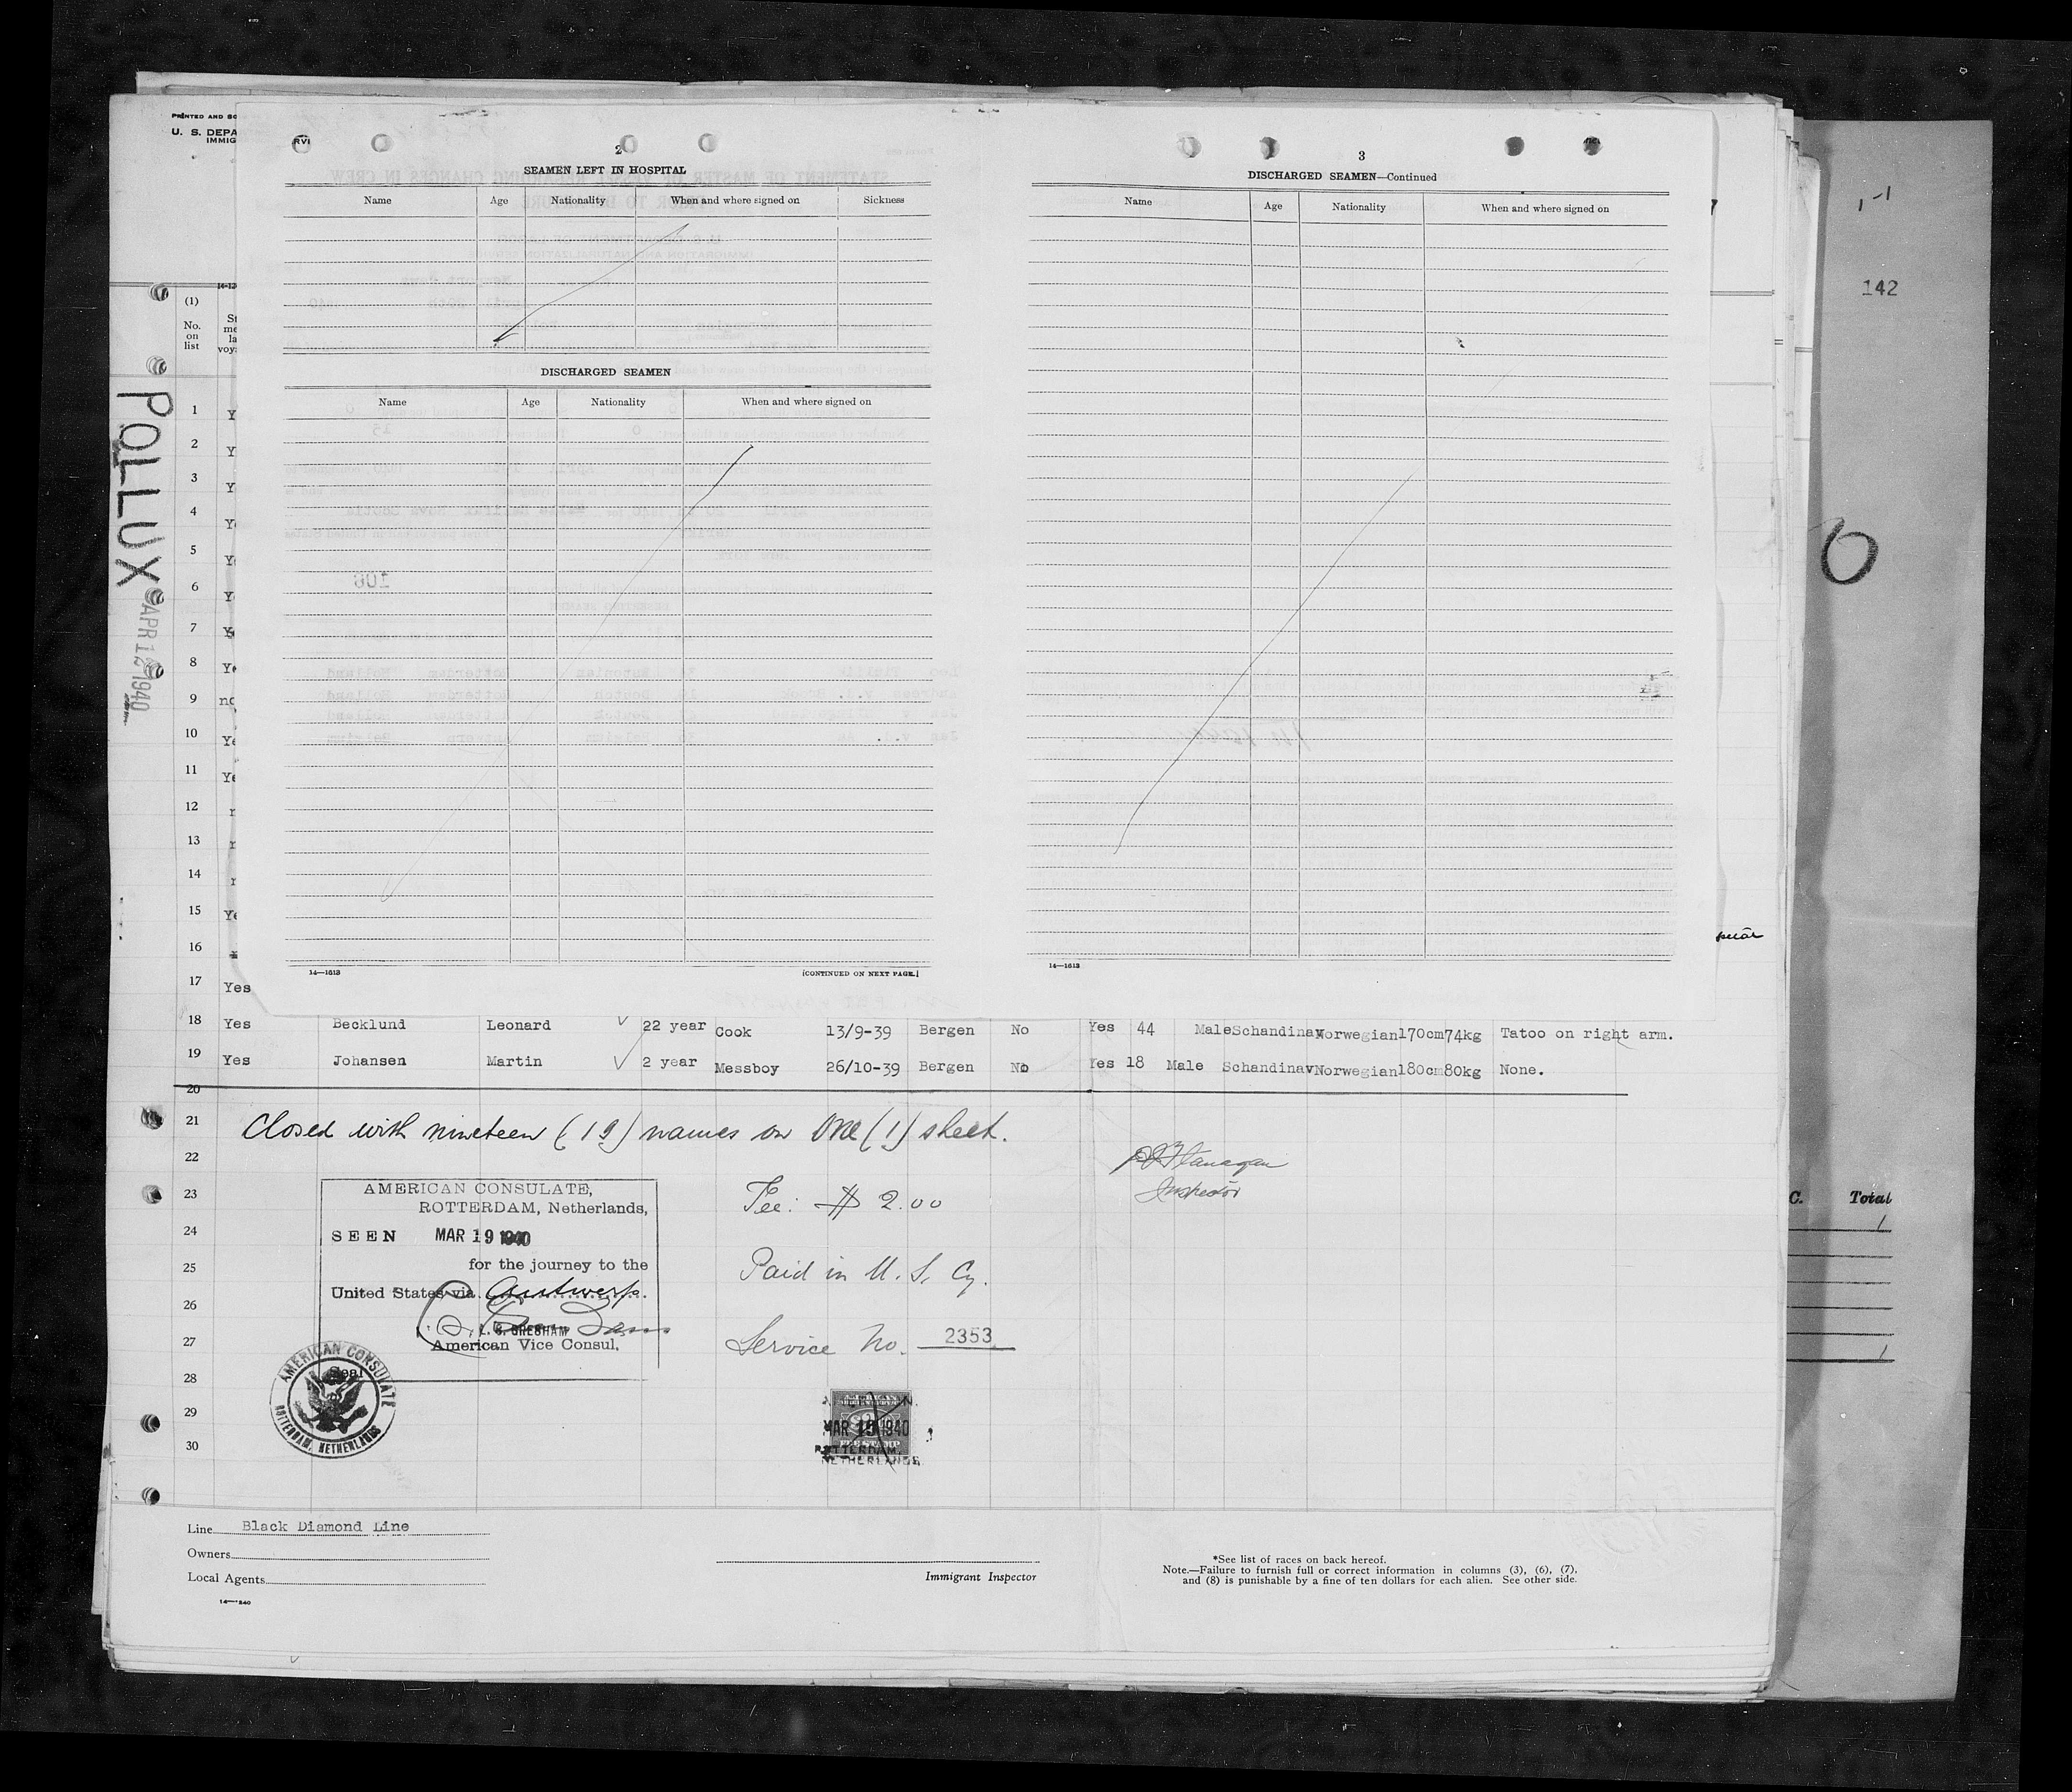 PRINTED AND
U. S. DEPA
IMMIG
RVI
2
SEAMEN LEFT IN HOSPITAL
Name Age Nationality When and where signed on Sickness
DISCHARGED SEAMEN
Name Age Nationality When and where signed on
14—1613 [CONTINUED ON NEXT PAGE.]
3
DISCHARGED SEAMEN—Continued
Name Age Nationality When and where signed on
14—1613
142
(1)
No.
on
list
POLLUX
APR 12 1940
1 Y
2 Y
3 Y
4 Y
5 Y
6 Y
7 Y
8 Ye
9 no
10 Ye
11 Ye
12
13
14
15 Ye
16
17 Yes
18 Yes Becklund Leonard 22 year Cook 13/9-39 Bergen No Yes 44 Male Schandinav Norwegian 170cm 74kg Tatoo on right arm.
19 Yes Johansen Martin 2 year Messboy 26/10-39 Bergen No Yes 18 Male Schandinav Norwegian 180cm 80kg None.
20
21 Closed with nineteen (19) names on one (1) sheet.
22
23
24
25
26
27
28
29
30
Flanagan
Inspector
AMERICAN CONSULATE,
ROTTERDAM, Netherlands,
SEEN MAR 19 1940
for the journey to the
United States via Antwerp.
L. C. GRESHAM
American Vice Consul.
Seal
AMERICAN CONSULATE
ROTTERDAM, NETHERLANDS
Fee: $ 2.00
Paid in U. S. Cy.
Service No. 2353
MAR 19 1940
FEE STAMP
ROTTERDAM,
NETHERLANDS
C. Total
1
1
Line Black Diamond Line
Owners
Local Agents
Immigrant Inspector
*See list of races on back hereof.
Note.—Failure to furnish full or correct information in columns (3), (6), (7),
and (8) is punishable by a fine of ten dollars for each alien. See other side.